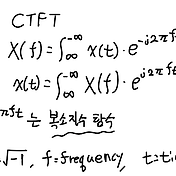 CTFT
X(f)=∫_∞^-∞ x(t)·e^-j2πft
x(t)=∫_∞^-∞ X(f)·e^j2πft
πft 는 복소지수 함수
√-1, f=frequency, t=ti